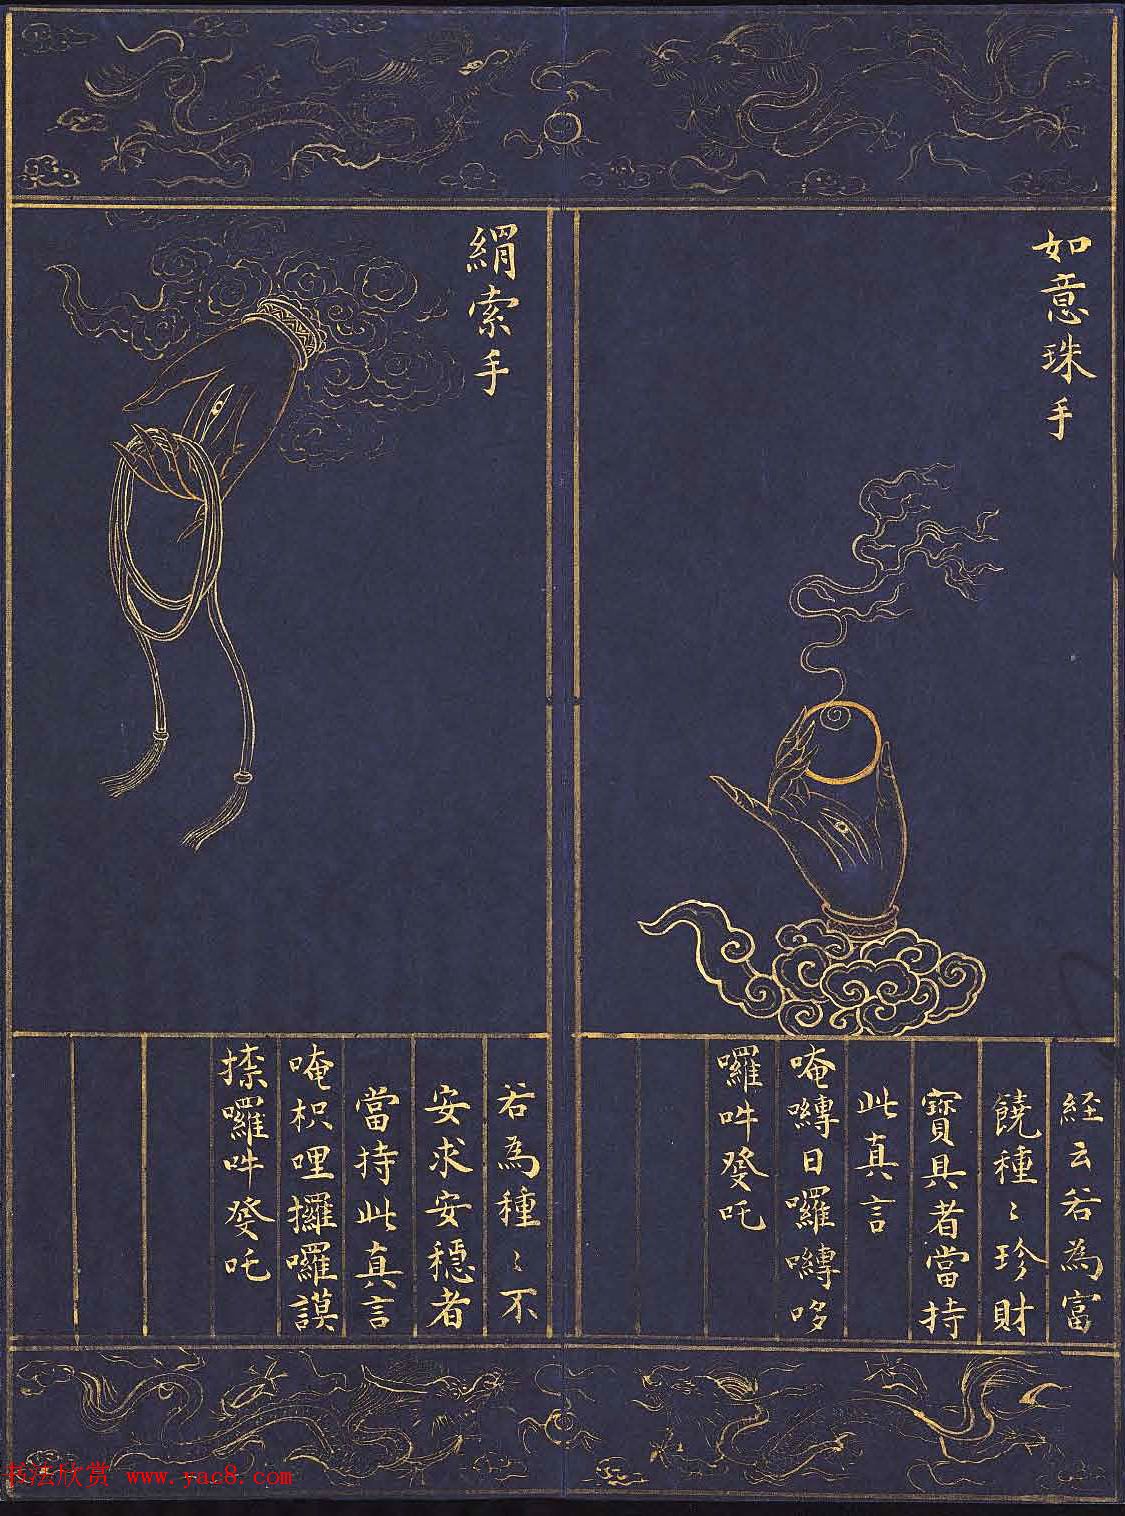 如意珠手
経云若為富
饒種〻珍財
寳具者當持
此真言
唵嚩日囉嚩哆
囉吽癹吒
絹索手
若為種〻不
安求安穩者
當持此真言
唵枳哩攞囉謨
捺囉吽癹吒
书法欣赏 www.yac8.com